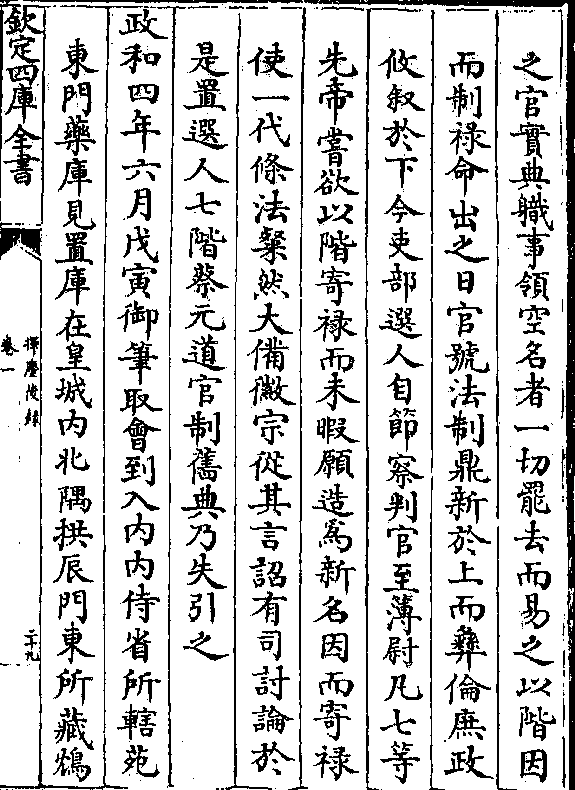 之官實典職事領空名者一切罷去而易之以階因
而制祿命出之日官號法制鼎新於上而彝倫庶政
攸叙於下今吏部選人自節察判官至簿尉凡七等
先帝嘗欲以階寄祿而未暇願造爲新名因而寄祿
使一代條法粲然大備徽宗從其言詔有司討論於
是置選人七階蔡元道官制舊典乃失引之
政和四年六月戊寅御筆取會到入内内侍省所轄苑
東門藥庫見置庫在皇城内北隅拱辰門東所藏鴆
欽定四庫全書
揮麈後録
卷一
二十九